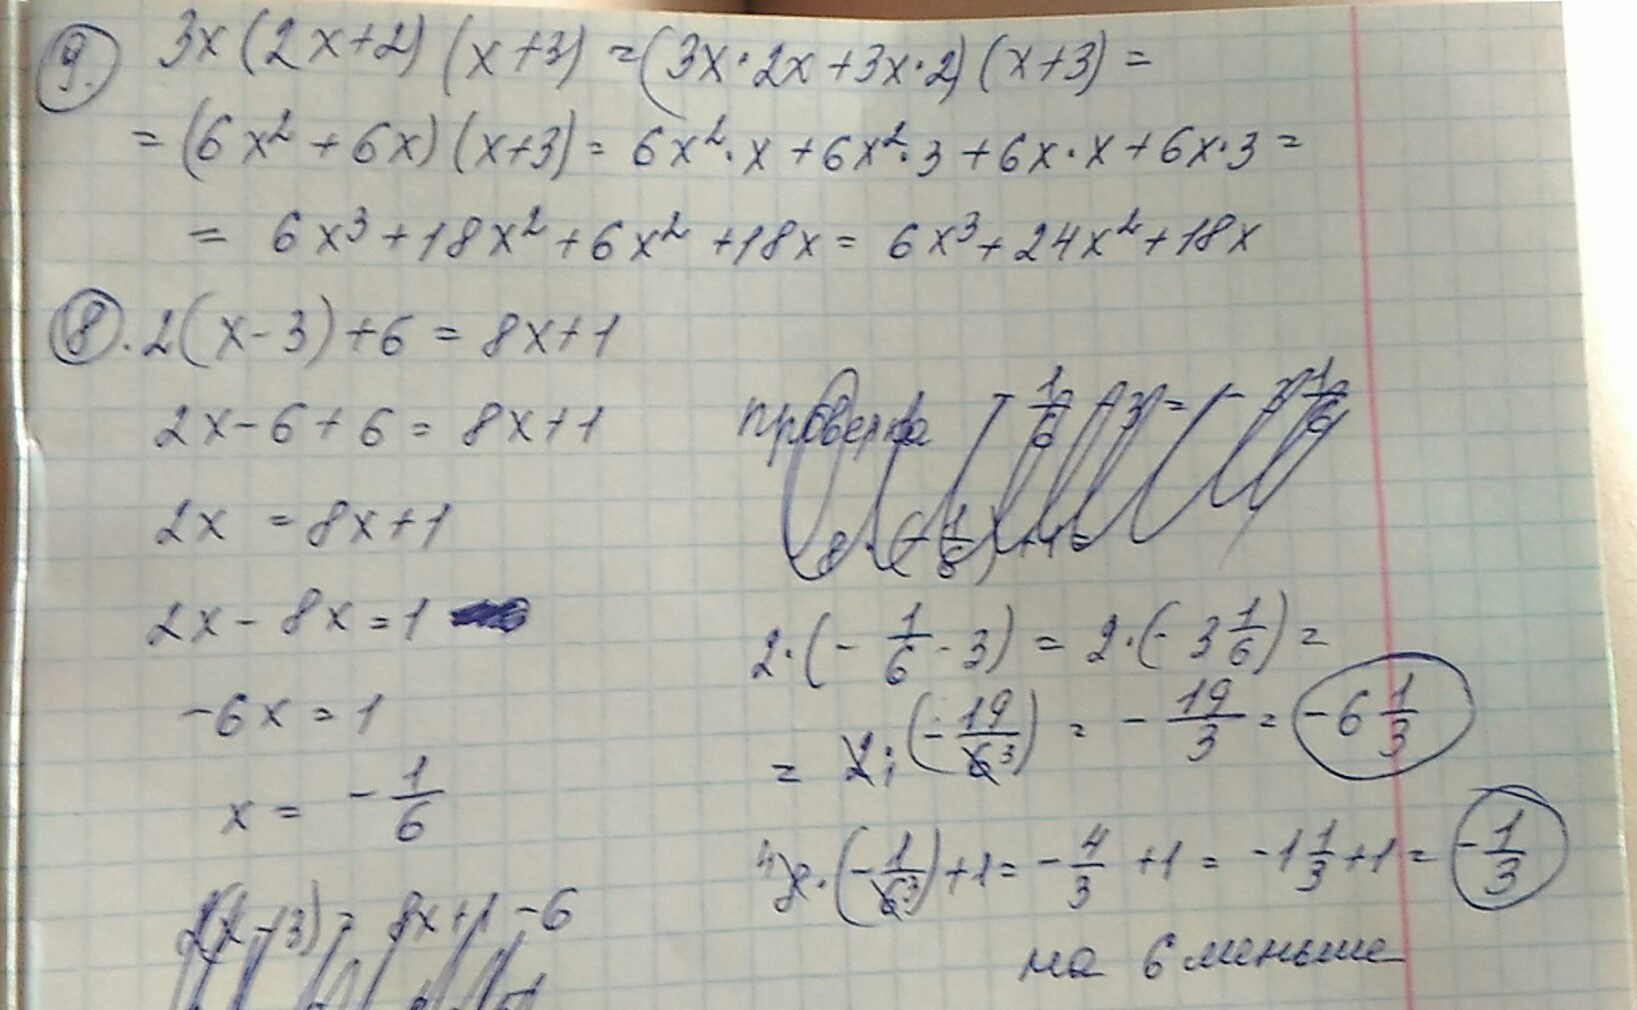 9. 3x(2x+2)(x+3)=(3x·2x+3x·2)(x+3)=
=(6x²+6x)(x+3)=6x²·x+6x²·3+6x·x+6x·3=
= 6x³+18x²+6x²+18x= 6x³+24x²+18x
8. 2(x-3)+6=8x+1
2x-6+6=8x+1
2x =8x+1
2x-8x=1
-6x=1
x= -1/6
2(x-3)= 8x+1-6
проверка
2·(-1/6-3)=2·(-3 1/6)=
= 2·(-19/6 3)=-19/3=-6 1/3
4 8·(-1/6 3)+1=-4/3+1=-1 1/3+1=-1/3
на 6 меньше